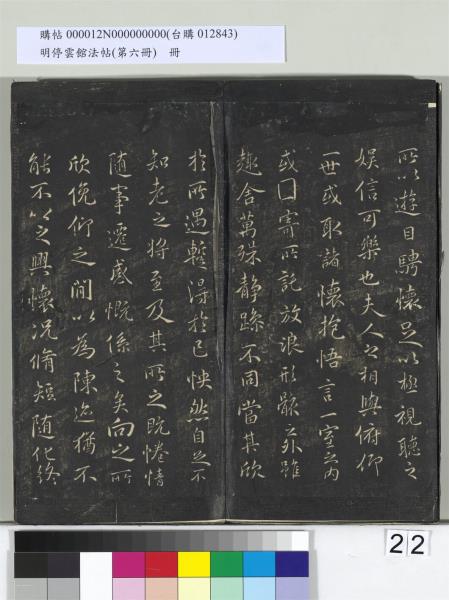 購帖 000012N000000000(台購 012843)
明停雲館法帖(第六冊) 冊
所以遊目騁懷足以極視聽之
娛信可樂也夫人之相與俯仰
一世或取諸懷抱悟言一室之內
或因寄所託放浪形骸之外雖
趣舍萬殊靜躁不同當其欣
於所遇暫得於己怏然自足不
知老之將至及其所之既惓情
隨事遷感慨係之矣向之所
欣俛仰之間以為陳迹猶不
能不以之興懷況脩短隨化終
22